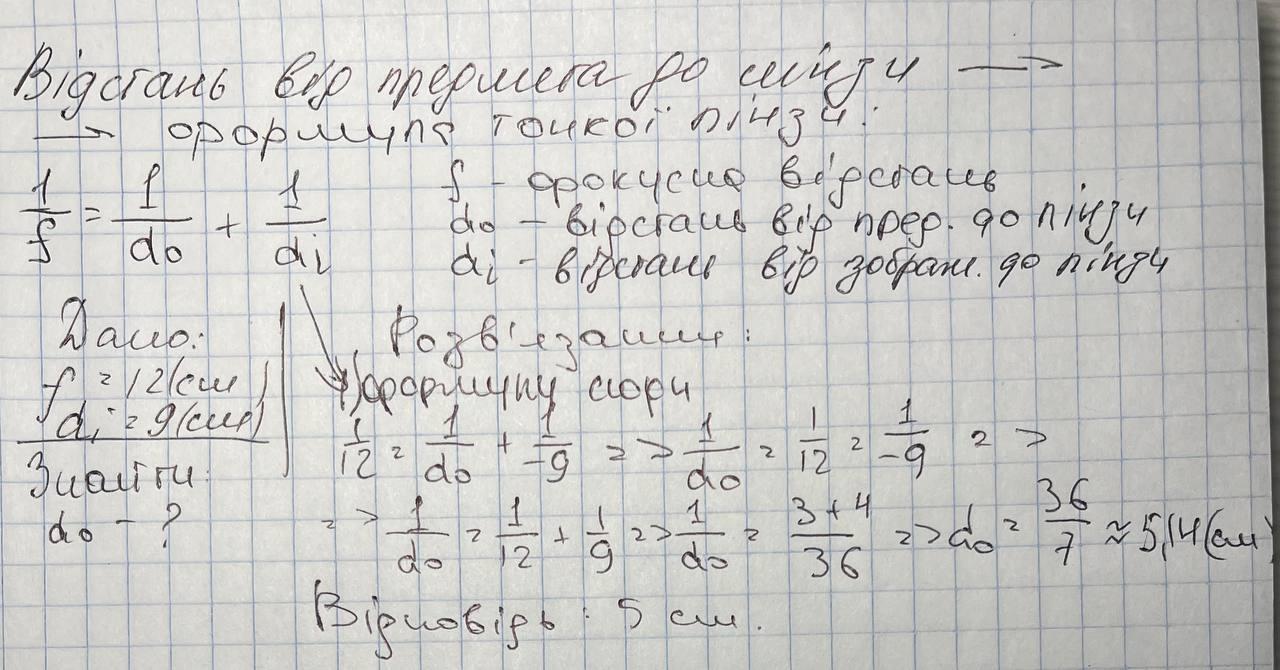 Відстань від предмета до лінзи →
→ формула тонкої лінзи:
1/f = 1/do + 1/di
f - фокусна відстань
do - відстань від пред. до лінзи
di - відстань від зображ. до лінзи
Дано:
f = 12(см)
di = 9(см)
Знайти:
do - ?
Розв'язання:
1) формулу
1/12 = 1/do + 1/-9 => 1/do = 1/12 = 1/-9 =>
=> 1/do = 1/12 + 1/9 => 1/do = 3+4/36 => do = 36/7 ≈ 5,14(см)
Відповідь: 5 см.